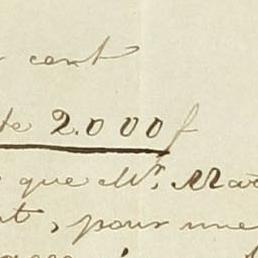 cent
te 2.000 f
que Mr. Mar
t, pour une